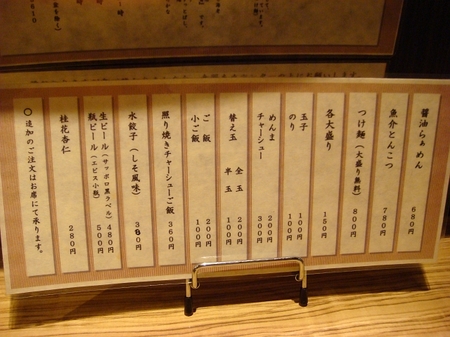 醤油らぁめん 680円
魚介とんこつ 780円
つけ麺(大盛り無料) 800円
各大盛り 150円
玉子 100円
のり 100円
めんま 200円
チャーシュー 300円
替え玉 全玉 200円
半玉 100円
ご飯 200円
小ご飯 100円
照り焼きチャーシューご飯 360円
水餃子(しそ風味) 300円
生ビール(サッポロ黒ラベル) 480円
瓶ビール(エビス小瓶) 500円
桂花杏仁 280円
○追加のご注文はお席にて承ります。